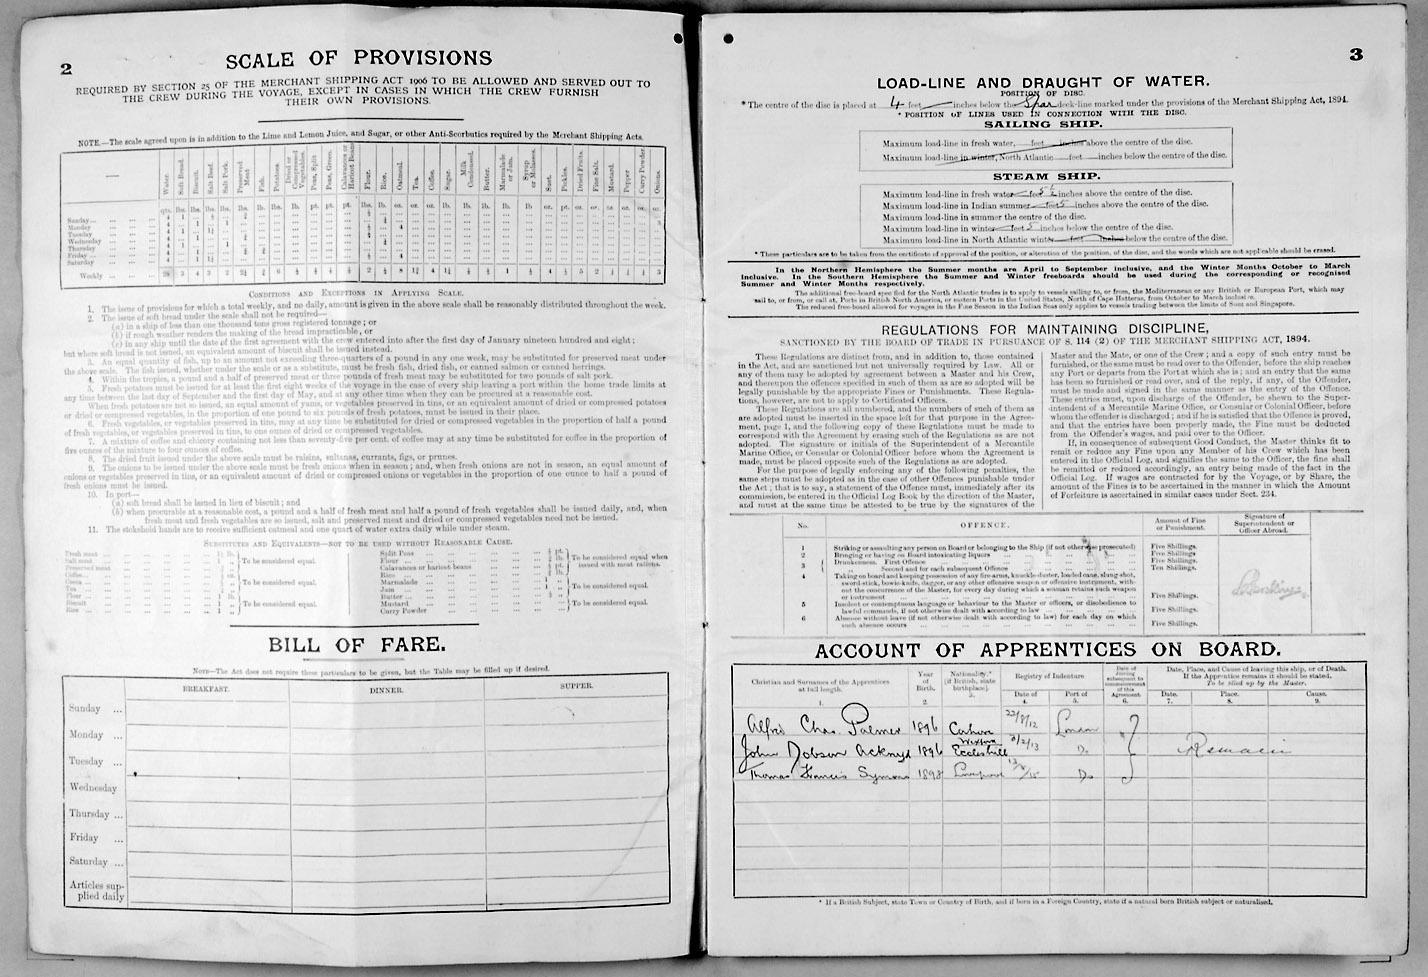 2
SCALE OF PROVISIONS
REQUIRED BY SECTION 25 OF THE MERCHANT SHIPPING ACT 1906 TO BE ALLOWED AND SERVED OUT TO
THE CREW DURING THE VOYAGE, EXCEPT IN CASES IN WHICH THE CREW FURNISH
THEIR OWN PROVISIONS.
NOTE.—The scale agreed upon is in addition to the Lime and Lemon Juice, and Sugar, or other Anti-Scorbutics required by the Merchant Shipping Acts.
Water. Soft Bread. Biscuit. Salt Beef. Salt Pork. Preserved Meat Fish. Potatoes. Dried or Compressed Vegetables. Peas, Split Peas, Green. Calavances or Haricot Beans Flour. Rice. Oatmeal. Tea. Coffee. Sugar. Milk Condensed. Butter. Marmalade or Jam. Syrup or Molasses. Suet. Pickles. Dried Fruits. Fine Salt. Mustard. Pepper Curry Powder. Onions.
qts. lbs. lbs. lbs. lbs. lbs. lb. lbs. lb. pt. pt. pt. lbs. lb. oz. oz. oz. lb. lb. lb. lb. lb. oz. pt. oz. oz. oz. oz. oz. oz.
Sunday
Monday
Tuesday
Wednesday
Thursday
Friday
Saturday
Weekly
CONDITIONS AND EXCEPTIONS IN APPLYING SCALE.
1. The issue of provisions for which a total weekly, and no daily, amount is given in the above scale shall be reasonably distributed throughout the week.
2. The issue of soft bread under the scale shall not be required—
(a) in a ship of less than one thousand tons gross registered tonnage; or
(b) if rough weather renders the making of the bread impracticable, or
(c) in any ship until the date of the first agreement with the crew entered into after the first day of January nineteen hundred and eight;
but where soft bread is not issued, an equivalent amount of biscuit shall be issued instead.
3. An equal quantity of fish, up to an amount not exceeding three-quarters of a pound in any one week, may be substituted for preserved meat under
the above scale. The fish issued, whether under the scale or as a substitute, must be fresh fish, dried fish, or canned salmon or canned herrings.
4. Within the tropics, a pound and a half of preserved meat or three pounds of fresh meat may be substituted for two pounds of salt pork.
5. Fresh potatoes must be issued for at least the first eight weeks of the voyage in the case of every ship leaving a port within the home trade limits at
any time between the last day of September and the first day of May, and at any other time when they can be procured at a reasonable cost.
When fresh potatoes are not so issued, an equal amount of yams, or vegetables preserved in tins, or an equivalent amount of dried or compressed potatoes
or dried or compressed vegetables, in the proportion of one pound to six pounds of fresh potatoes, must be issued in their place.
6. Fresh vegetables, or vegetables preserved in tins, may at any time be substituted for dried or compressed vegetables in the proportion of half a pound
of fresh vegetables, or vegetables preserved in tins, to one ounce of dried or compressed vegetables.
7. A mixture of coffee and chicory containing not less than seventy-five per cent. of coffee may at any time be substituted for coffee in the proportion of
five ounces of the mixture to four ounces of coffee.
8. The dried fruit issued under the above scale must be raisins, sultanas, currants, figs, or prunes.
9. The onions to be issued under the above scale must be fresh onions when in season; and, when fresh onions are not in season, an equal amount of
onions or vegetables preserved in tins, or an equivalent amount of dried or compressed onions or vegetables in the proportion of one ounce to half a pound of
fresh onions must be issued.
10. In port—
(a) soft bread shall be issued in lieu of biscuit; and
(b) when procurable at a reasonable cost, a pound and a half of fresh meat and half a pound of fresh vegetables shall be issued daily, and, when
fresh meat and fresh vegetables are so issued, salt and preserved meat and dried or compressed vegetables need not be issued.
11. The stokehold hands are to receive sufficient oatmeal and one quart of water extra daily while under steam.
SUBSTITUTES AND EQUIVALENTS—NOT TO BE USED WITHOUT REASONABLE CAUSE.
Fresh meat
Salt meat
Preserved meat
To be considered equal.
Coffee
Cocoa
Tea
To be considered equal.
Flour
Biscuit
Rice
To be considered equal.
Split Peas
Flour
Calavances or haricot beans
Rice
To be considered equal when issued with meat rations.
Marmalade
Jam
Butter
To be considered equal.
Mustard
Curry Powder
To be considered equal.
BILL OF FARE.
NOTE—The Act does not require these particulars to be given, but the Table may be filled up if desired.
BREAKFAST. DINNER. SUPPER.
Sunday
Monday
Tuesday
Wednesday
Thursday
Friday
Saturday
Articles supplied daily
3
LOAD-LINE AND DRAUGHT OF WATER.
POSITION OF DISC.
* The centre of the disc is placed at 4 feet — inches below the Spar deck-line marked under the provisions of the Merchant Shipping Act, 1894.
* POSITION OF LINES USED IN CONNECTION WITH THE DISC.
SAILING SHIP.
Maximum load-line in fresh water, feet inches above the centre of the disc.
Maximum load-line in winter, North Atlantic feet inches below the centre of the disc.
STEAM SHIP.
Maximum load-line in fresh water feet 5½ inches above the centre of the disc.
Maximum load-line in Indian summer feet 5 inches above the centre of the disc.
Maximum load-line in summer the centre of the disc.
Maximum load-line in winter feet 5 inches below the centre of the disc.
Maximum load-line in North Atlantic winter feet inches below the centre of the disc.
* These particulars are to be taken from the certificate of approval of the position, or alteration of the position, of the disc, and the words which are not applicable should be erased.
In the Northern Hemisphere the Summer months are April to September inclusive, and the Winter Months October to March
inclusive. In the Southern Hemisphere the Summer and Winter freeboards should be used during the corresponding or recognised
Summer and Winter Months respectively.
The additional free-board specified for the North Atlantic trades is to apply to vessels sailing to, or from, the Mediterranean or any British or European Port, which may
sail to, or from, or call at, Ports in British North America, or eastern Ports in the United States, North of Cape Hatteras, from October to March inclusive.
The reduced free-board allowed for voyages in the Fine Season in the Indian Seas only applies to vessels trading between the limits of Suez and Singapore.
REGULATIONS FOR MAINTAINING DISCIPLINE,
SANCTIONED BY THE BOARD OF TRADE IN PURSUANCE OF S. 114 (2) OF THE MERCHANT SHIPPING ACT, 1894.
These Regulations are distinct from, and in addition to, those contained
in the Act, and are sanctioned but not universally required by Law. All or
any of them may be adopted by agreement between a Master and his Crew,
and thereupon the offences specified in such of them as are so adopted will be
legally punishable by the appropriate Fines or Punishments. These Regula-
tions, however, are not to apply to Certificated Officers.
These Regulations are all numbered, and the numbers of such of them as
are adopted must be inserted in the space left for that purpose in the Agree-
ment, page 1, and the following copy of these Regulations must be made to
correspond with the Agreement by erasing such of the Regulations as are not
adopted. The signature or initials of the Superintendent of a Mercantile
Marine Office, or Consular or Colonial Officer before whom the Agreement is
made, must be placed opposite such of the Regulations as are adopted.
For the purpose of legally enforcing any of the following penalties, the
same steps must be adopted as in the case of other Offences punishable under
the Act; that is to say, a statement of the Offence must, immediately after its
commission, be entered in the Official Log Book by the direction of the Master,
and must at the same time be attested to be true by the signatures of the
Master and the Mate, or one of the Crew; and a copy of such entry must be
furnished, or the same must be read over to the Offender, before the ship reaches
any Port or departs from the Port at which she is; and an entry that the same
has been so furnished or read over, and of the reply, if any, of the Offender,
must be made and signed in the same manner as the entry of the Offence.
These entries must, upon discharge of the Offender, be shewn to the Super-
intendent of a Mercantile Marine Office, or Consular or Colonial Officer, before
whom the offender is discharged; and if he is satisfied that the Offence is proved,
and that the entries have been properly made, the Fine must be deducted
from the Offender's wages, and paid over to the Officer.
If, in consequence of subsequent Good Conduct, the Master thinks fit to
remit or reduce any Fine upon any Member of his Crew which has been
entered in the Official Log, and signifies the same to the Officer, the fine shall
be remitted or reduced accordingly, an entry being made of the fact in the
Official Log. If wages are contracted for by the Voyage, or by Share, the
amount of the Fines is to be ascertained in the manner in which the Amount
of Forfeiture is ascertained in similar cases under Sect. 234.
No. OFFENCE. Amount of Fine or Punishment. Signature of Superintendent or Officer Abroad.
1 Striking or assaulting any person on Board or belonging to the Ship (if not otherwise prosecuted) Five Shillings.
2 Bringing or having on Board intoxicating liquors Five Shillings.
3 Drunkenness. First Offence Five Shillings.
Second and for each subsequent Offence Ten Shillings.
4 Taking on board and keeping possession of any fire-arms, knuckle-duster, loaded cane, slung-shot,
sword-stick, bowie-knife, dagger, or any other offensive weapon or offensive instrument, with-
out the concurrence of the Master, for every day during which a seaman retains such weapon
or instrument Five Shillings.
5 Insolent or contemptuous language or behaviour to the Master or officers, or disobedience to
lawful commands, if not otherwise dealt with according to law Five Shillings.
6 Absence without leave (if not otherwise dealt with according to law) for each day on which
such absence occurs Five Shillings.
ACCOUNT OF APPRENTICES ON BOARD.
Christian and Surnames of the Apprentices at full length. Year of Birth. Nationality.* (if British, state birthplace). Registry of Indenture Date of Port of Date of Joining subsequent to commencement of this Agreement. Date, Place, and Cause of leaving this ship, or of Death. If the Apprentice remains it should be stated. To be filled up by the Master. Date. Place. Cause.
1. 2. 3. 4. 5. 6. 7. 8. 9.
Alfred Chas. Palmer 1896 Wexford 22/8/12 London
John Dobson Ackroyd 1896 Eccleshill 3/2/13 Do Remain
Thomas Francis Symons 1898 Liverpool Do
* If a British Subject, state Town or Country of Birth, and if born in a Foreign Country, state if a natural born British subject or naturalised.